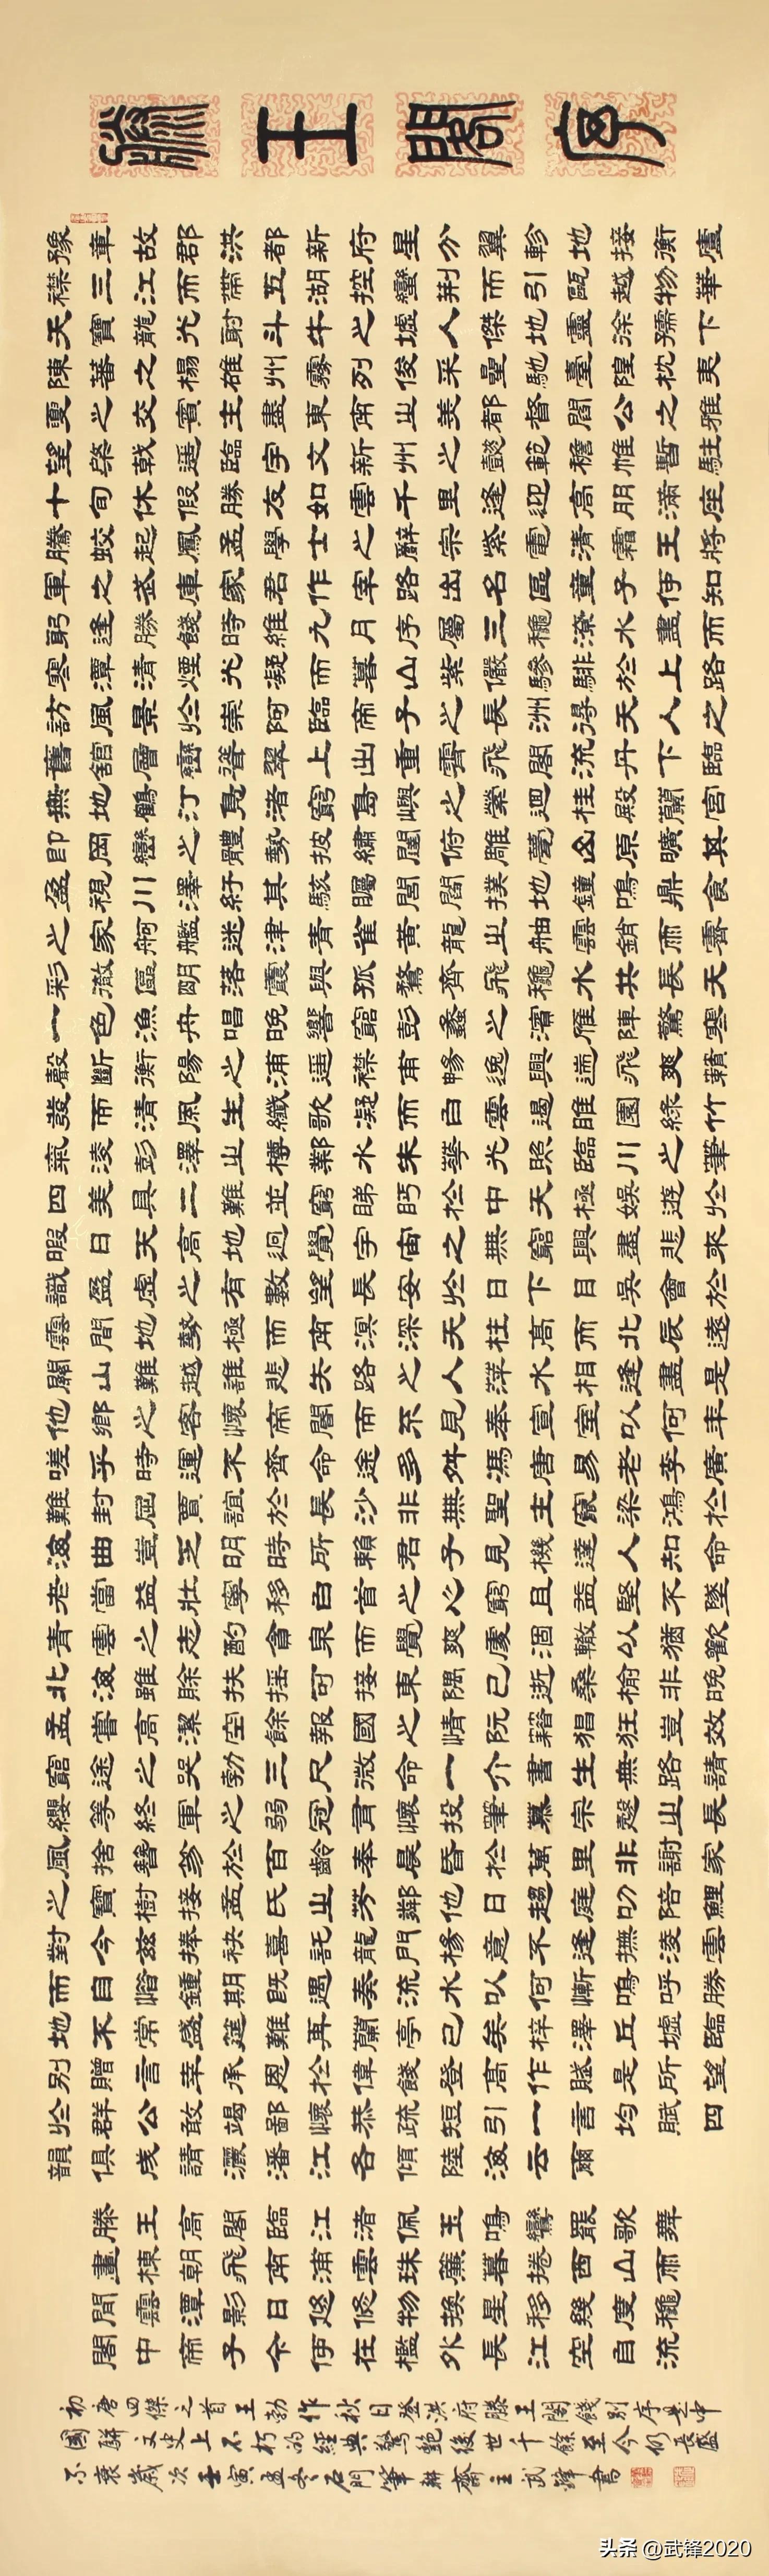 滕王閣序
豫章故郡洪都新府星分翼軫地接衡廬
襟三江而帶五湖控蠻荊而引甌越物華
天寶龍光射斗牛之墟人傑地靈徐孺下
陳蕃之榻雄州霧列俊采星馳臺隍枕夷
夏之交賓主盡東南之美都督閻公之雅
望棨戟遥臨宇文新州之懿範檐帷暫駐
十旬休假勝友如雲千里逢迎高朋滿座
騰蛟起鳳孟學士之辭宗紫電清霜王將
軍之武庫家君作宰路出名區童子何知
窮逢勝餞時維九月序屬三穐潦水盡而
寒潭清煙光凝而暮山紫儼驂騑於上路
訪風景於崇阿臨帝子之長洲得天人之
舊館層巒聳翠上出重霄飛閣流丹下臨
無地鶴汀鳧渚窮島嶼之縈迴桂殿蘭宮
即岡巒之體勢披繡闥俯雕甍山原曠其
盈視川澤紆其駭矚閭閻撲地鐘鳴鼎食
之家舸艦迷津青雀黃龍之舳雲銷雨霽
彩澈區明落霞與孤鶩齊飛穐水共長天
一色漁舟唱晚響窮彭蠡之濱雁陣驚寒
聲斷衡陽之浦遥襟甫暢逸興遄飛爽籟
發而清風生纖歌凝而白雲遏睢園綠竹
氣凌彭澤之樽鄴水朱華光照臨川之筆
四美具二難並窮睇眄於中天極娛遊於
暇日天高地迥覺宇宙之無窮興盡悲來
識盈虛之有數望長安於日下目吳會於
雲間地勢極而南溟深天柱高而北辰遠
關山難越誰悲失路之人萍水相逢盡是
他鄉之客懷帝閽而不見奉宣室以何年
嗟乎時運不齊命途多舛馮唐易老李廣
難封屈賈誼於長沙非無聖主竄梁鴻於
海曲豈乏明時所賴君子見機達人知命
老當益壯寧移白首之心窮且益堅不墜
青雲之志酌貪泉而覺爽處涸轍以猶歡
北海雖賒扶搖可接東隅已逝桑榆非晚
孟嘗高潔空餘報國之情阮籍猖狂豈效
窮途之哭勃三尺微命一介書生無路請
纓等終軍之弱冠有懷投筆慕宗愨之長
風捨簪笏於百齡奉晨昏於萬里非謝家
之寶樹接孟氏之芳鄰他日趨庭叨陪鯉
對今茲捧袂喜託龍門楊意不逢撫凌雲
而自惜鍾期既遇奏流水以何慚嗚呼勝
地不常盛筵難再蘭亭已矣梓澤丘墟臨
別贈言幸承恩於偉餞登高作賦是所望
於群公敢竭鄙懷恭疏短引一言均賦四
韻俱成請灑潘江各傾陸海云爾
滕王高閣臨江渚佩玉鳴鸞罷歌舞
畫棟朝飛南浦雲珠簾暮捲西山雨
閒雲潭影日悠悠物換星移幾度穐
閣中帝子今何在檻外長江空自流
初唐四傑之首王勃作秋日登洪府滕王閣餞別序是中
國駢文史上不朽的經典驚艷後世千餘至今仍長盛
不衰歲次壬寅孟冬石門筆耕齋主武鋒書
头条 @武锋2020